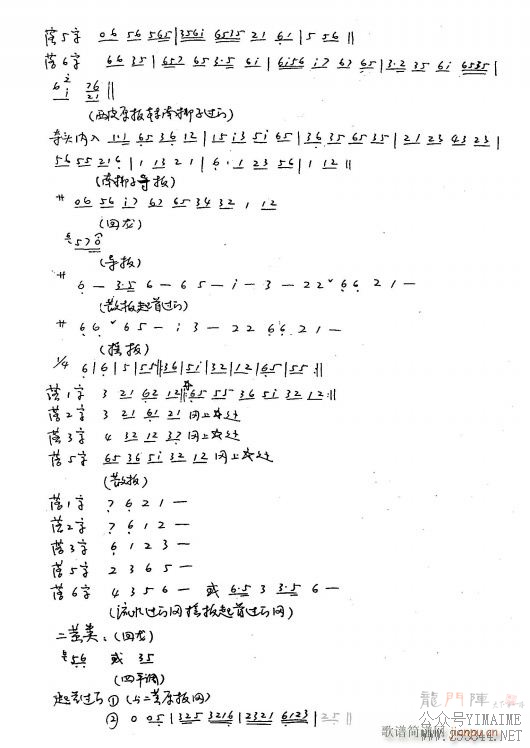 落5字 06 56 565 | 3561 6535 21 61 | 5 56 ||
落6字 66 35 | 657 65 3·5 6i | 6i56 i7 67 65 | 3·2 35 6i 6535 |
6 2 i 76 21 ||
1·1 65 36 12 | 15 i3 5i 65 | 36 35 65 35 | 21 23 43 23 |
56 55 21 6 | 1 13 21 | 6·1 23 56 | 1 12 ||
(南梆子导板)
サ 06 56 i7 67 65 34 32 1 12
(回龙)
570
(导板)
サ 6 — 3·5 6 — 6 5 — i — 3 — 22 ˇ 66 21 —
(散板起首过门)
サ 66 ˇ 65 — i 3 — 22 66 21 —
(摇板)
1/4 6 | 6 | 5 | 55 || 36 | 5i | 32 | 12 | 65 | 55 :||
落1字 3 21 62 12 || 65 55 36 5i 32 12 :||
落2字 3 21 61 21 同上
落3字 4 32 12 37 同上
落5字 65 36 5i 32 12 同上
(散板)
落1字 7 6 2 1 —
落2字 7 6 1 2 —
落3字 6 1 2 3 —
落5字 2 3 6 5 —
落6字 4 3 5 6 — 或 6·5 3 3·5 6 —
(流水过门同摇板起首过门同)
二黄类: (回龙)
56 或 35
(四平调)
起首过门 ① (与二黄原板同)
② 0 05 | 325 3216 | 2321 6123 | 25
龍門陣
公众号YIMAIME
歌谱简谱网